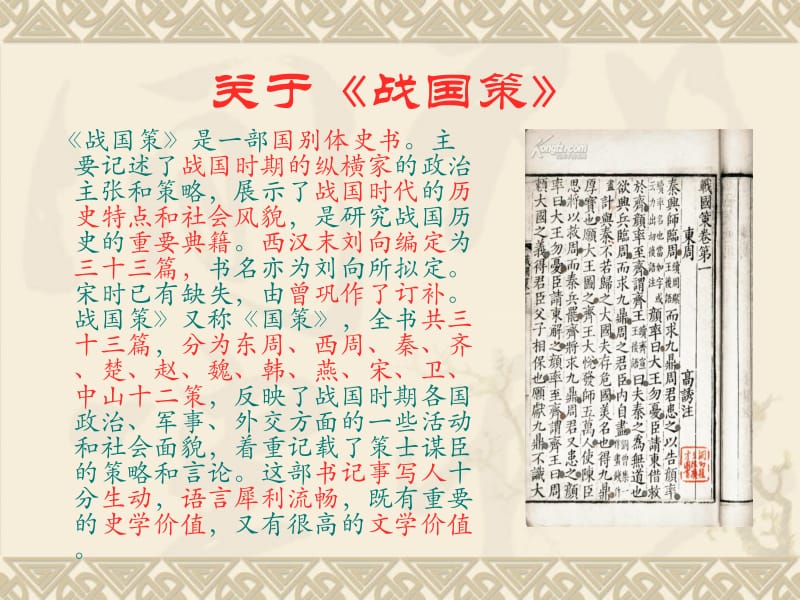 关于《战国策》
《战国策》是一部国别体史书。主
要记述了战国时期的纵横家的政治
主张和策略，展示了战国时代的历
史特点和社会风貌，是研究战国历
史的重要典籍。西汉末刘向编定为
三十三篇，书名亦为刘向所拟定。
宋时已有缺失，由曾巩作了订补。
战国策》又称《国策》，全书共三
十三篇，分为东周、西周、秦、齐
、楚、赵、魏、韩、燕、宋、卫、
中山十二策，反映了战国时期各国
政治、军事、外交方面的一些活动
和社会面貌，着重记载了策士谋臣
的策略和言论。这部书记事写人十
分生动，语言犀利流畅，既有重要
的史学价值，又有很高的文学价值
。
戰國策卷第一
東周 高誘注
秦興師臨周而求九鼎周君患之以告顏率
顏率曰大王勿憂臣請東借救
於齊顏率至齊謂齊王曰夫秦之為無道也
欲興兵臨周而求九鼎周之君臣內自畫
計與秦不若歸之大國夫存危國美名也得九鼎
厚寶也願大王圖之齊王大悅發師五萬人使陳臣
思將以救周而秦兵罷齊將求九鼎周君又患之顏
率曰大王勿憂臣請東解之顏率至齊謂齊王曰周
賴大國之義得君臣父子相保也願獻九鼎不識大